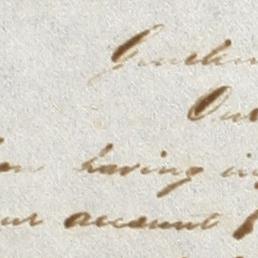 Gentlem
Our
having in
our account